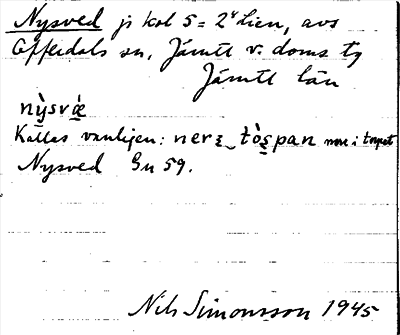 Nysved js kol 5 = 2ᵛ Lien, avs
Offerdals sn, Jämtl v. doms tg
Jämtl län
nỳsvǽ
Kallas vanligen: nerε tòspan
Nysved Gu 59.
Nils Simonsson 1945